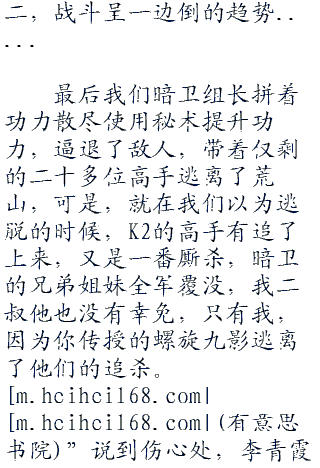 二，战斗呈一边倒的趋势..
...
最后我们暗卫组长拼着
功力散尽使用秘术提升功
力，逼退了敌人，带着仅剩
的二十多位高手逃离了荒
山，可是，就在我们以为逃
脱的时候，K2的高手有追了
上来，又是一番厮杀，暗卫
的兄弟姐妹全军覆没，我二
叔他也没有幸免，只有我，
因为你传授的螺旋九影逃离
了他们的追杀。
[m.hcihci168.com|
[m.hcihci168.com|(有意思
书院)”说到伤心处，李青霞